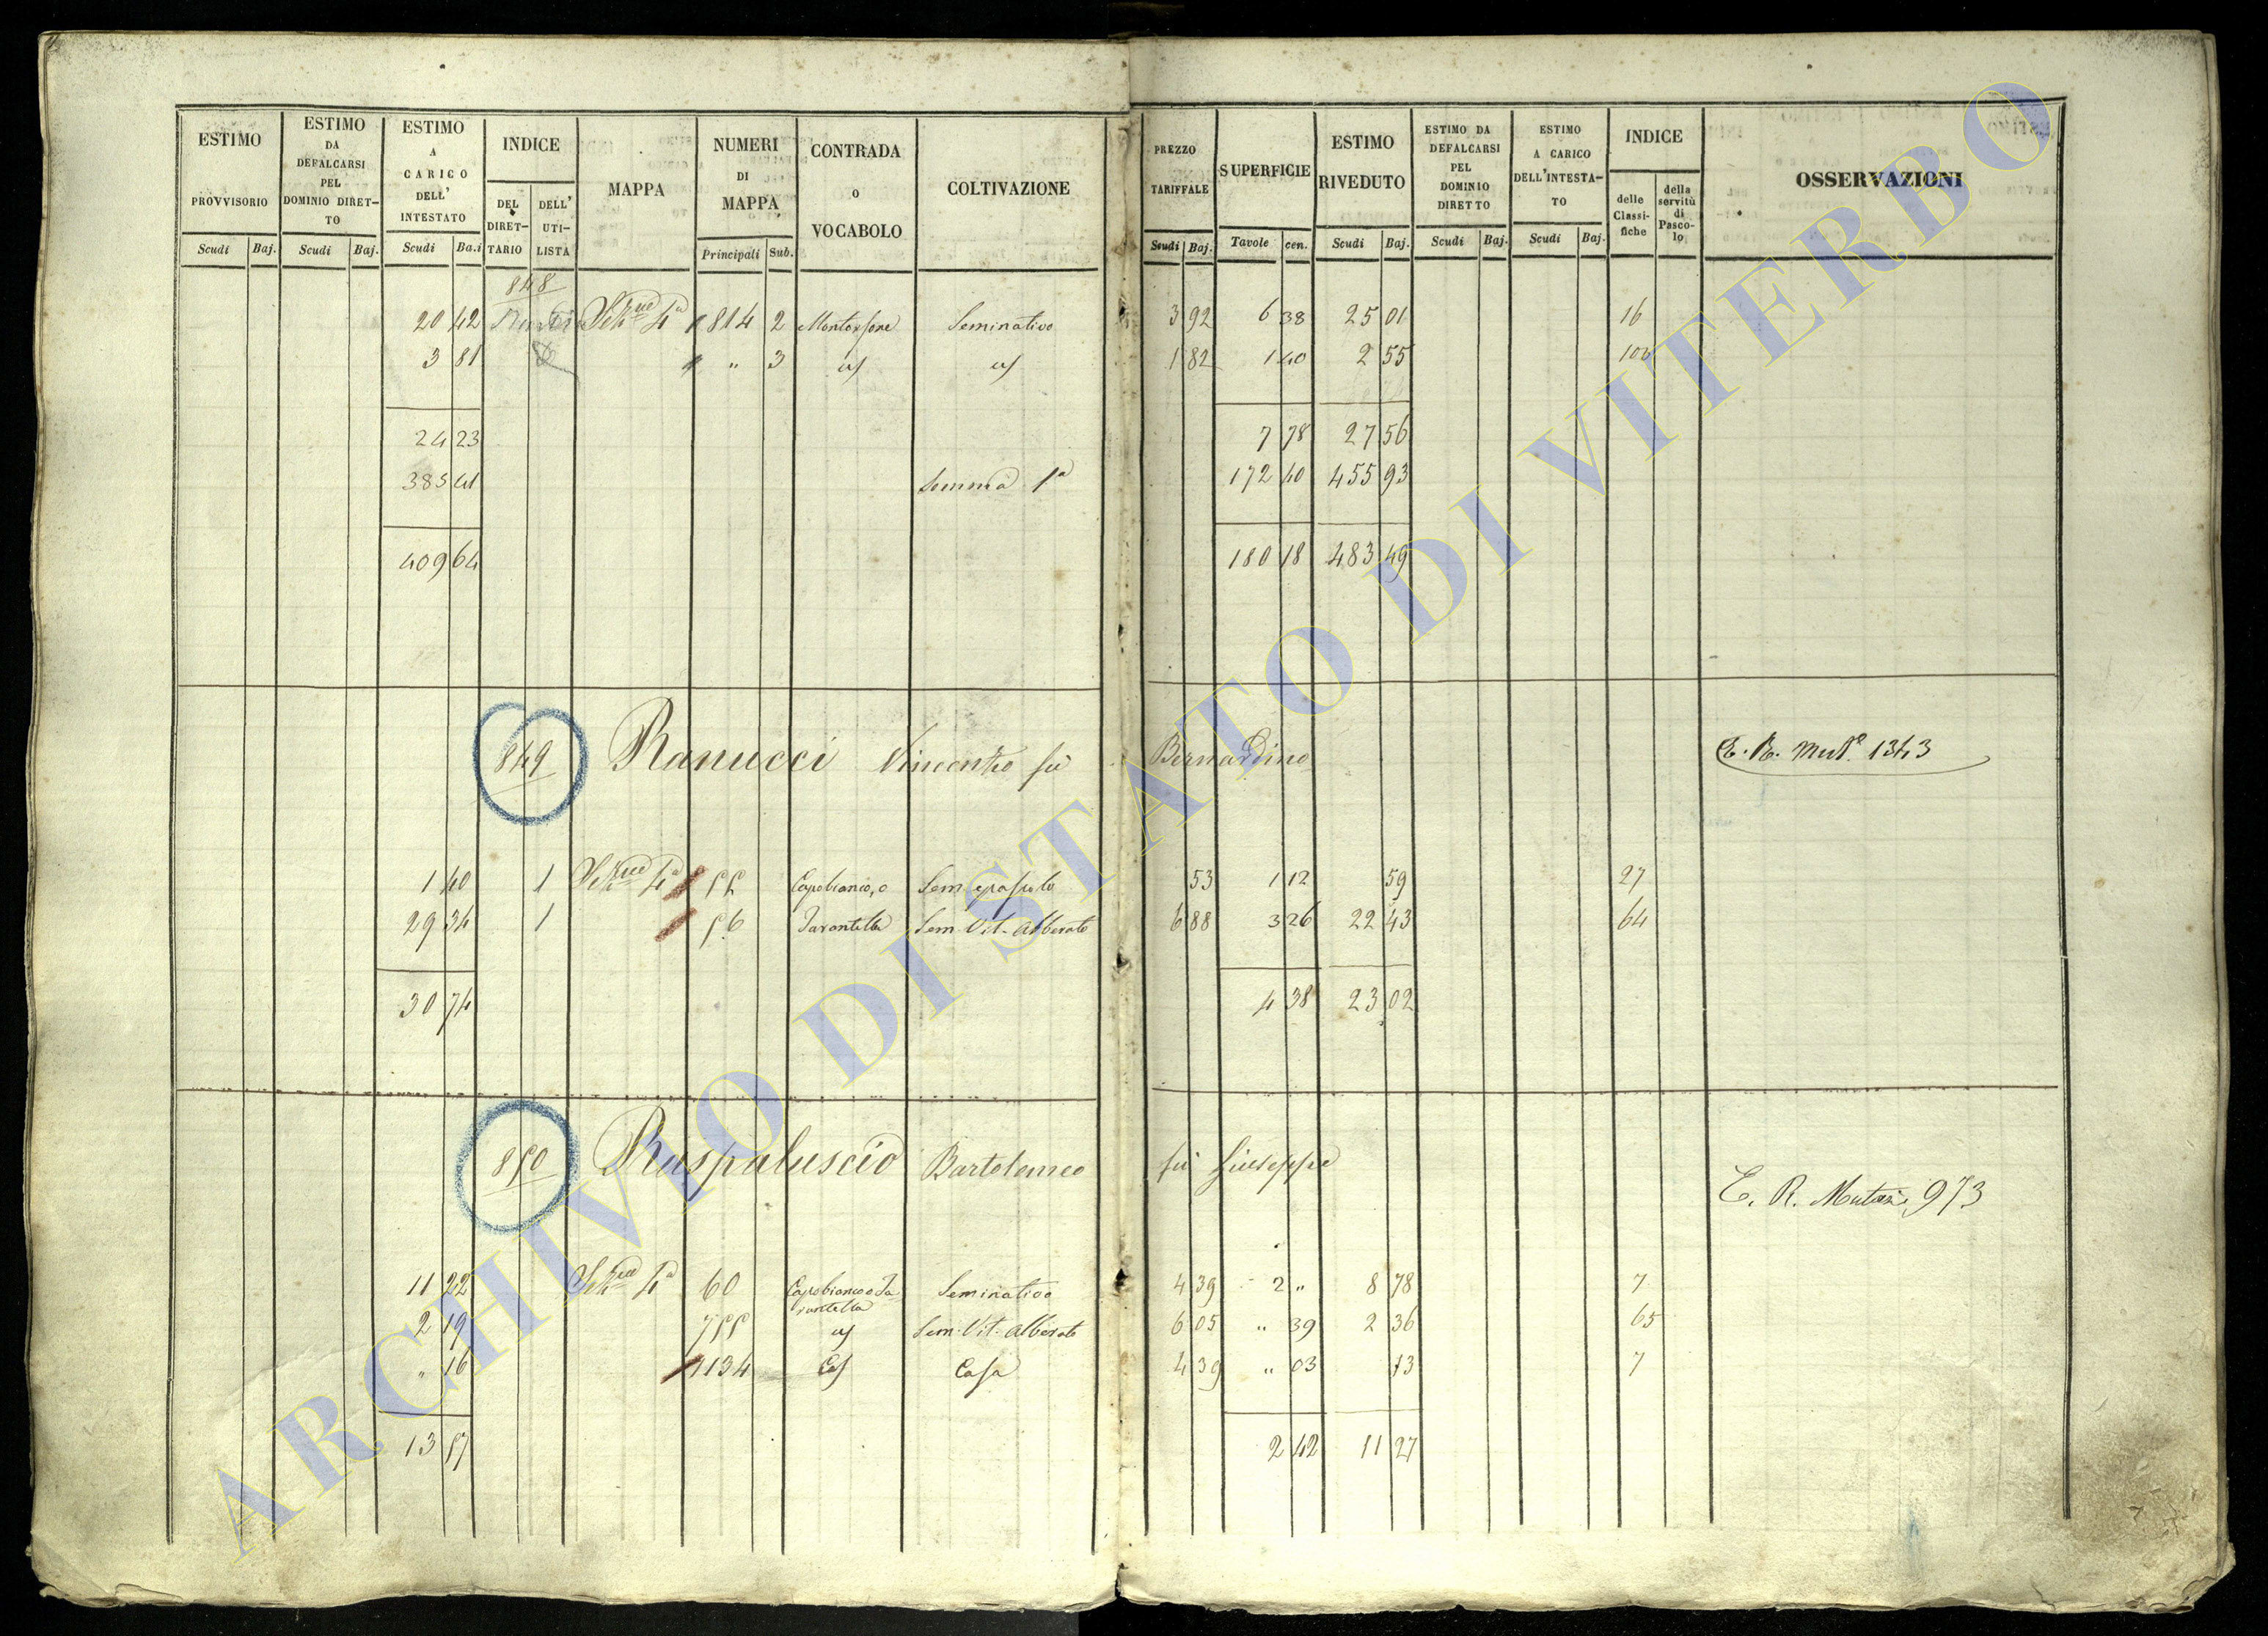 ESTIMO PROVVISORIO
Scudi Baj.
ESTIMO DA DEFALCARSI PEL DOMINIO DIRET-TO
Scudi Baj.
ESTIMO A CARICO DELL' INTESTATO
Scudi Ba.i
INDICE
DEL DIRET-TARIO
DELL' UTI-LISTA
MAPPA
NUMERI DI MAPPA
Principali Sub.
CONTRADA o VOCABOLO
COLTIVAZIONE
PREZZO TARIFFALE
Scudi Baj.
SUPERFICIE
Tavole cen.
ESTIMO RIVEDUTO
Scudi Baj.
ESTIMO DA DEFALCARSI PEL DOMINIO DIRETTO
Scudi Baj.
ESTIMO A CARICO DELL'INTESTA-TO
Scudi Baj.
INDICE
delle Classi-fiche
della servitù di Pasco-lo
OSSERVAZIONI
848
20 42 1814 2 Seminativo 3 92 6 38 25 01 16
3 81 " 3 1 82 1 40 2 55
24 23 7 78 27 56
385 41 Somma 1ª 172 40 455 93
409 64 180 18 483 49
849 Ranucci Vincenzo fù Bernardino
1 40 1 55 Capobianco, o 53 1 12 59 27
29 34 1 56 Tarantella Sem. Vit. Alberato 6 88 3 26 22 43 64
30 74 4 38 23 02
850 Raspaluscio Bartolomeo fù Giuseppe
E. R. Mutaz. 973
11 22 60 Capobianco o Ta
rantella Seminativo 4 39 2 " 8 78 7
2 19 755 Sem. Vit. Alberato 6 05 " 39 2 36 65
" 16 1134 Casa 4 39 " 03 13 7
13 57 2 42 11 27
ARCHIVIO DI STATO DI VITERBO